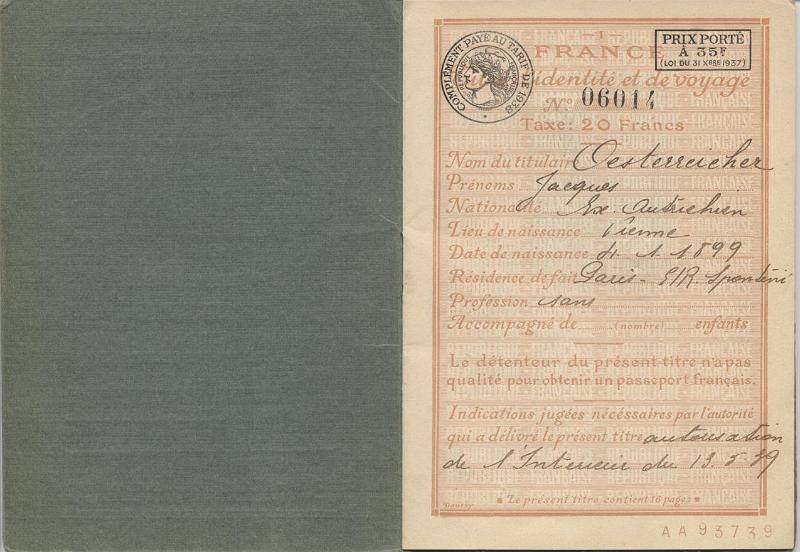 COMPLÉMENT PAYÉ AU TARIF DE 1938
RÉPUBLIQUE FRANÇAISE
— 1 —
FRANCE
PRIX PORTÉ
À 35F
(LOI DU 31 XBRE 1937)
d'identité et de voyage
No 06014
Taxe: 20 Francs
Nom du titulaire Oesterreicher
Prénoms Jacques
Nationalité Ex. Autrichien
Lieu de naissance Vienne
Date de naissance 4. 1. 1899
Résidence de fait Paris - R. Spontini
Profession sans
Accompagné de ........ (nombre) ........ enfants
Le détenteur du présent titre n'a pas
qualité pour obtenir un passeport français.
Indications jugées nécessaires par l'autorité
qui a délivré le présent titre autorisation
de l'Interieur du 13.5.39
Le présent titre contient 16 pages
AA93739